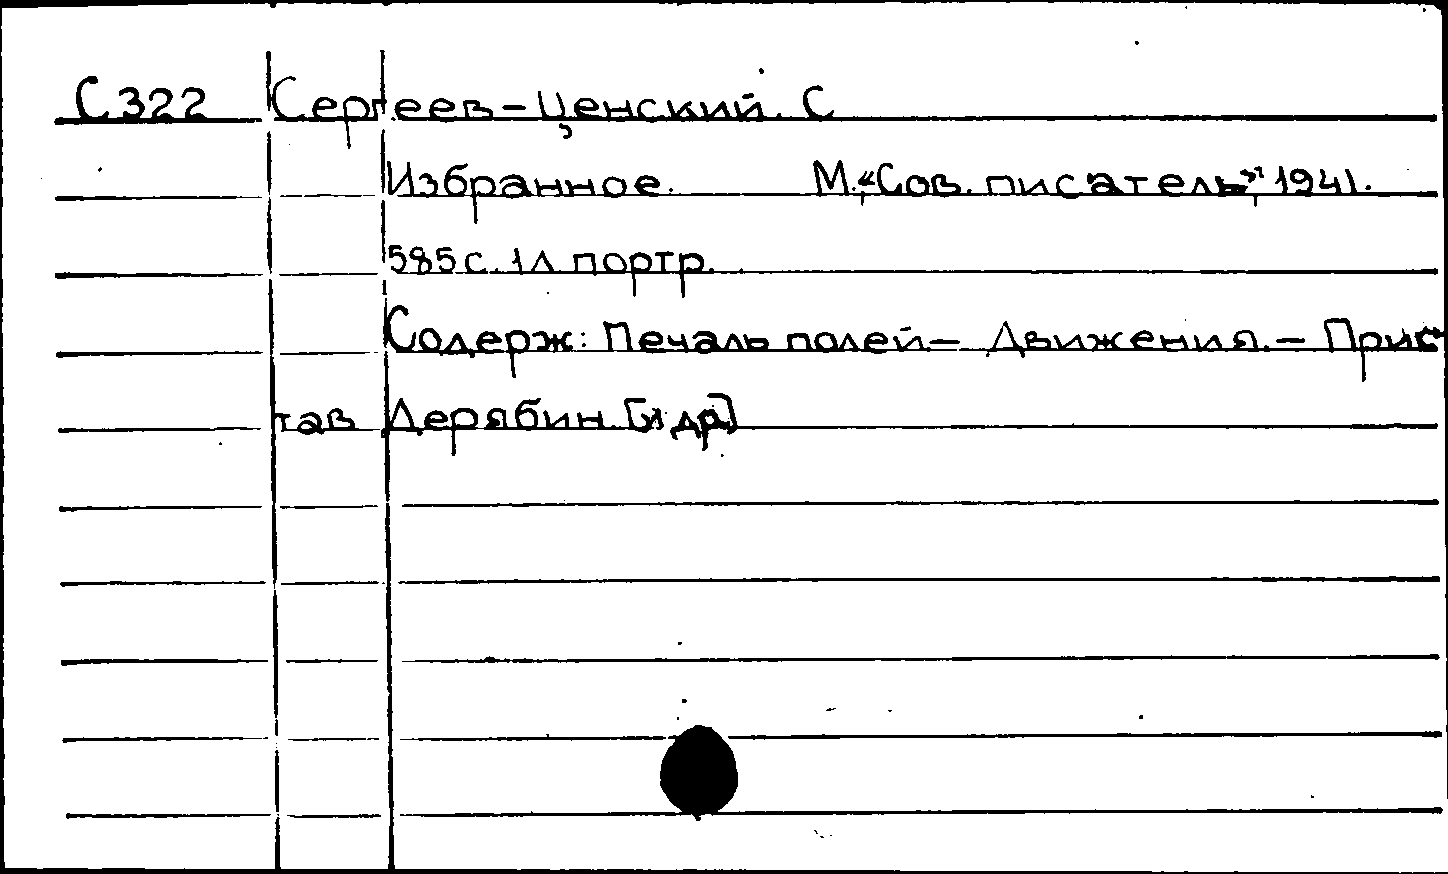 С322 Сергеев-Ценский. С
Избранное. М.,«Сов. писатель», 1941.
585 с. 1л портр.
Содерж: Печаль полей- Движения.- Прис
тав Дерябин. [и др]